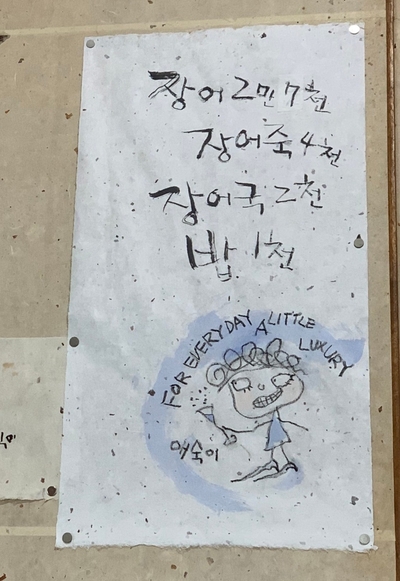 장어 2만 7천
장어죽 4천
장어국 2천
밥 1천
FOR EVERYDAY A LITTLE LUXURY
애숙이